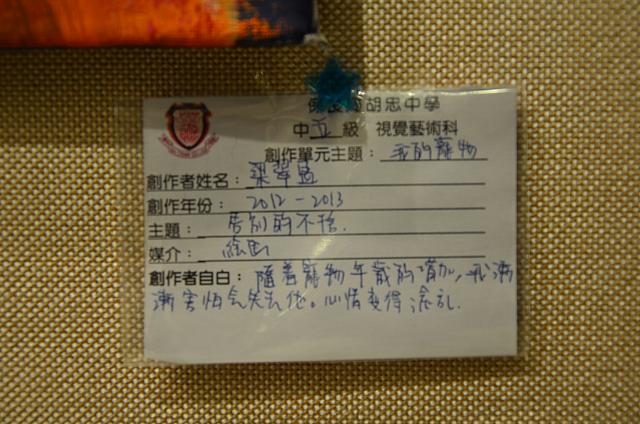 胡忠中學
中五級 視覺藝術科
創作單元主題：我的寵物
創作者姓名：梁翠
創作年份：2012-2013
主題：告別的不捨.
媒介：绘画
創作者自白：隨着寵物年歲的增加，我漸
漸害怕会失去他。心情变得淩乱.